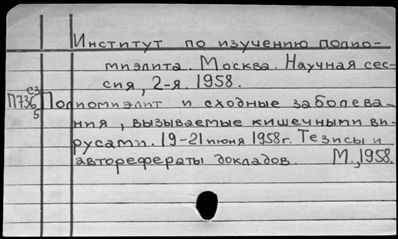 Институт по изучению полио-
миэлита. Москва. Научная сес-
сия, 2-я. 1958.
сз
П736
5
Полиомиэлит и сходные заболева-
ния, вызываемые кишечными ви-
русами. 19-21 июня 1958 г. Тезисы и
авторефераты докладов. М., 1958.